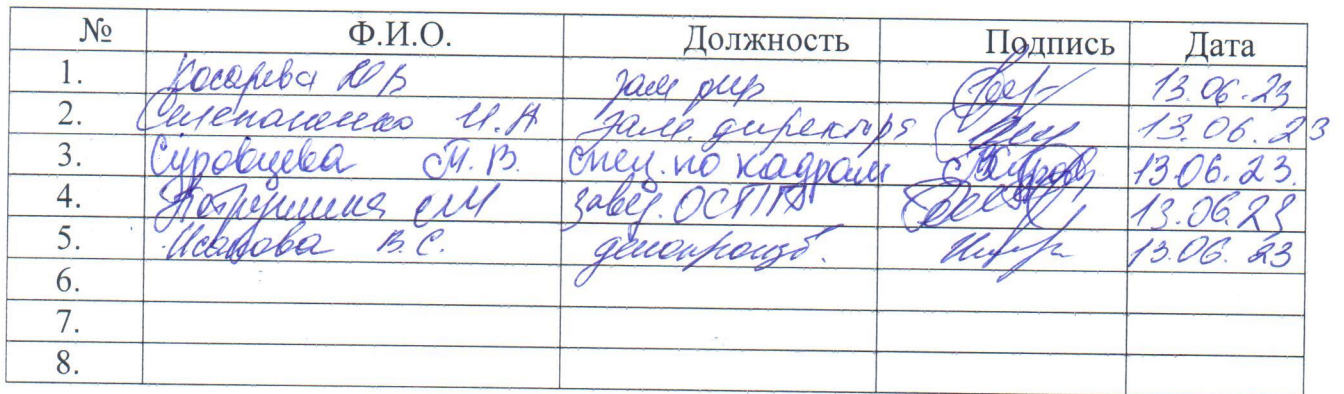 № Ф.И.О. Должность Подпись Дата
1. Косарева Ю В зам дир 13.06.23
2. И.А зам. директора 13.06.23
3. Суровцева Т.В. спец. по кадрам 13.06.23.
4. завед. 13.06.23
5. В.С. делопроизв. 13.06.23
6.
7.
8.